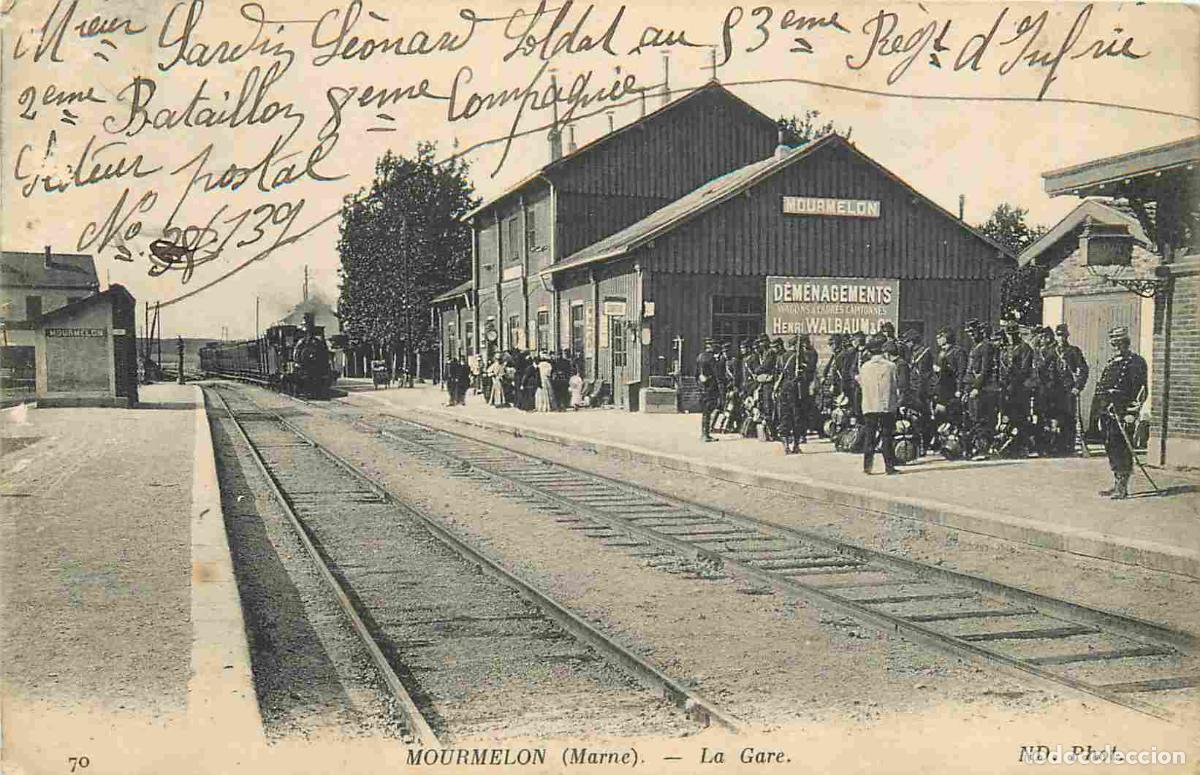 Mieur Sardin Léonard Soldat au 83eme Régt d'Infrie
2eme Bataillon 8eme Compagnie
Secteur postal
No. 139
MOURMELON
MOURMELON
DÉMÉNAGEMENTS
WAGONS & CADRES CAPITONNÉS
HENRI WALBAUM & Cie
70
MOURMELON (Marne). — La Gare.
ND. Phot.
todocoleccion